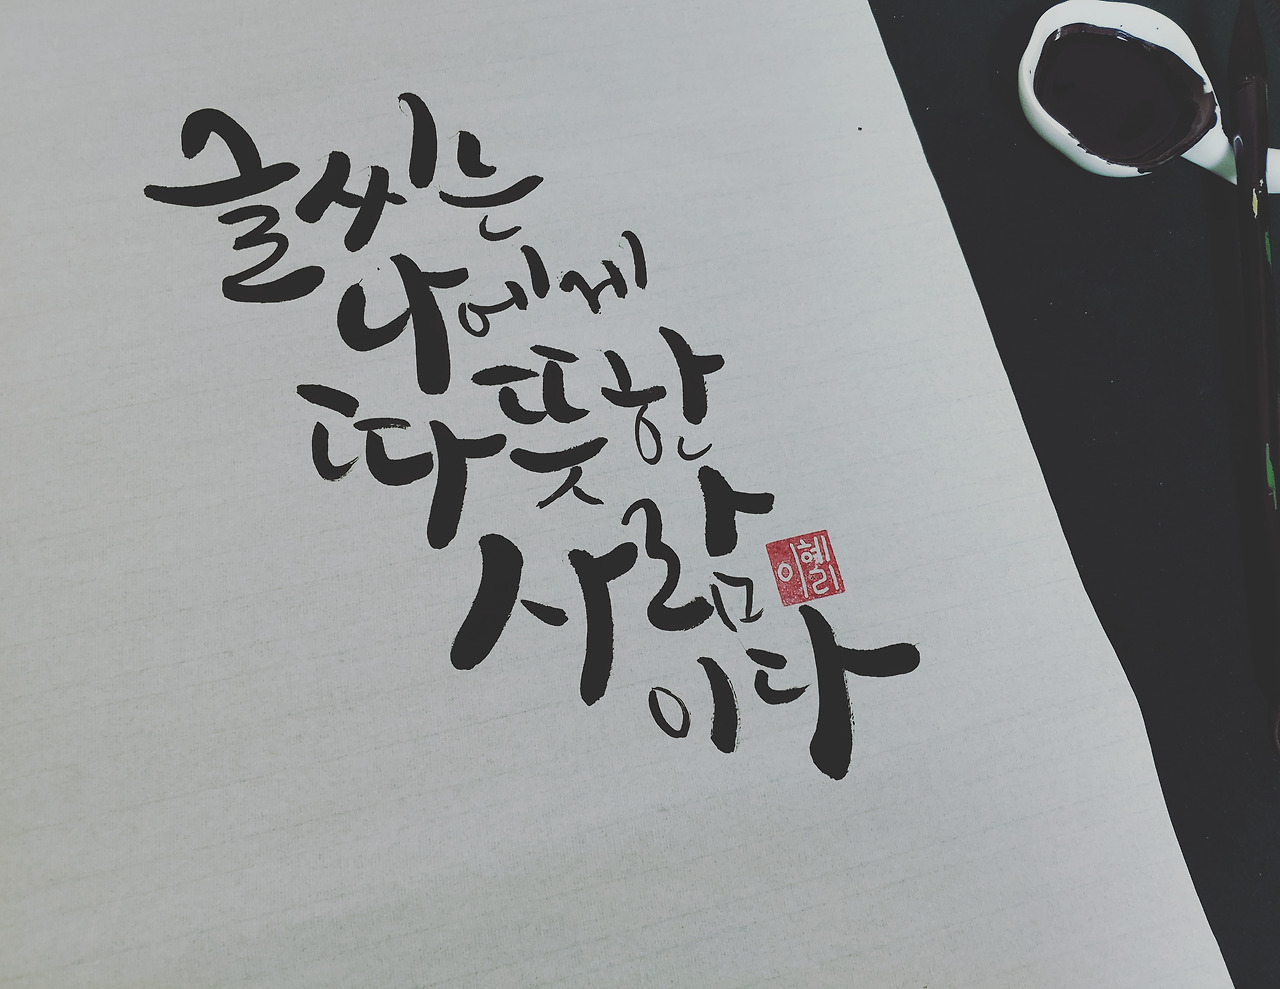 글씨는
나에게
따뜻한
사람
이다
이혜리